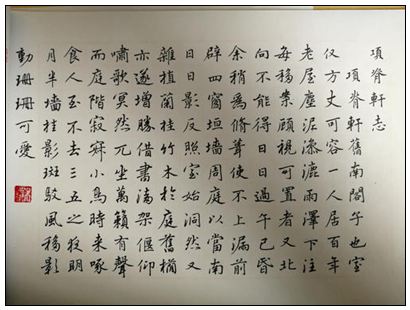 項脊軒志
項脊軒舊南閤子也室
仅方丈可容一人居百年
老屋塵泥滲漉雨澤下注
每移案顧視可置者又北
向不能得日日過午已昏
余稍為脩葺使不上漏前
辟四窗垣墙周庭以當南
日日影反照室始洞然又
雜植蘭桂竹木於庭舊楯
亦遂增勝借書滿架偃仰
嘯歌冥然兀坐萬籟有聲
而庭階寂寂小鳥時來啄
食人至不去三五之夜明
月半墙桂影斑駁風移影
動珊珊可愛